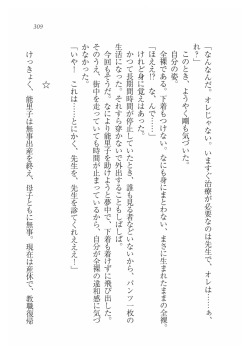 309
「なんなんだ。オレじゃない。いますぐ治療が必要なのは先生で、オレは……ぁ、
れ？」
このとき、ようやく剛も気づいた。
自分の姿。
全裸である。下着もつけない。なにも身にまとわない、まさに生まれたままの全裸。
「ほええ!? な、なんで……」
けれど身に覚えはあった。
かつて長長期時間が停止していたとき、誰も見る者などいないから、パンツ一枚の
生活になった。それすら穿かないで外出することもしばしば。
今回もそうだ。なにより能里子を助けようと夢中で、下着も着けずに飛び出した。
そのうえ、街中を走っていても時間が止まっているから、自分が全裸の違和感に気づ
かなかった。
「いや！ これは……とにかく、先生を、先生を診てくれえええ！」
☆
けっきょく、能里子は無事出産を終え、母子ともに無事。現在は産休で、教職復帰